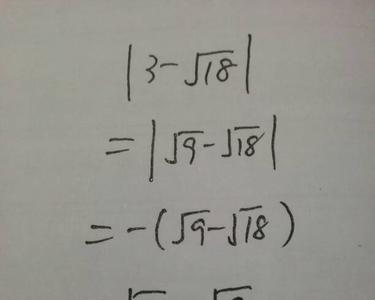 |3-√18|
=|√9-√18|
=-(√9-√18)